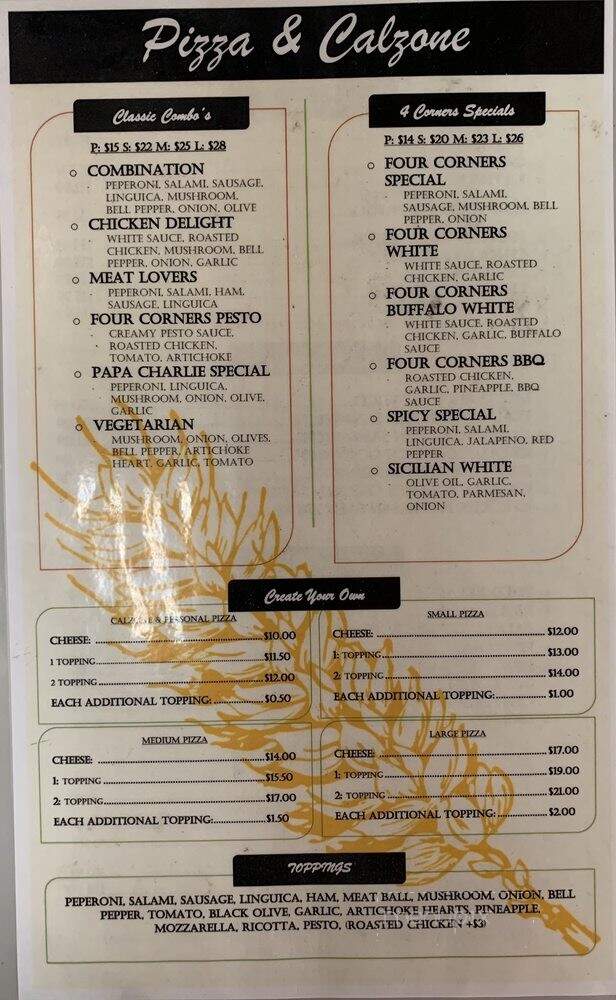 Pizza & Calzone
Classic Combo's
P: $15 S: $22 M: $25 L: $28
COMBINATION
PEPERONI, SALAMI, SAUSAGE,
LINGUICA, MUSHROOM,
BELL PEPPER, ONION, OLIVE
CHICKEN DELIGHT
WHITE SAUCE, ROASTED
CHICKEN, MUSHROOM, BELL
PEPPER, ONION, GARLIC
MEAT LOVERS
PEPERONI, SALAMI, HAM,
SAUSAGE, LINGUICA
FOUR CORNERS PESTO
CREAMY PESTO SAUCE,
ROASTED CHICKEN,
TOMATO, ARTICHOKE
PAPA CHARLIE SPECIAL
PEPERONI, LINGUICA,
MUSHROOM, ONION, OLIVE,
GARLIC
VEGETARIAN
MUSHROOM, ONION, OLIVES,
BELL PEPPER, ARTICHOKE
HEART, GARLIC, TOMATO
4 Corners Specials
P: $14 S: $20 M: $23 L: $26
FOUR CORNERS
SPECIAL
PEPERONI, SALAMI,
SAUSAGE, MUSHROOM, BELL
PEPPER, ONION
FOUR CORNERS
WHITE
WHITE SAUCE, ROASTED
CHICKEN, GARLIC
FOUR CORNERS
BUFFALO WHITE
WHITE SAUCE, ROASTED
CHICKEN, GARLIC, BUFFALO
SAUCE
FOUR CORNERS BBQ
ROASTED CHICKEN,
GARLIC, PINEAPPLE, BBQ
SAUCE
SPICY SPECIAL
PEPERONI, SALAMI,
LINGUICA, JALAPENO, RED
PEPPER
SICILIAN WHITE
OLIVE OIL, GARLIC,
TOMATO, PARMESAN,
ONION
Create Your Own
CALZONE & PERSONAL PIZZA
CHEESE: $10.00
1 TOPPING $11.50
2 TOPPING $12.00
EACH ADDITIONAL TOPPING: $0.50
SMALL PIZZA
CHEESE: $12.00
1: TOPPING $13.00
2: TOPPING $14.00
EACH ADDITIONAL TOPPING: $1.00
MEDIUM PIZZA
CHEESE: $14.00
1: TOPPING $15.50
2: TOPPING $17.00
EACH ADDITIONAL TOPPING: $1.50
LARGE PIZZA
CHEESE: $17.00
1: TOPPING $19.00
2: TOPPING $21.00
EACH ADDITIONAL TOPPING: $2.00
TOPPINGS
PEPERONI, SALAMI, SAUSAGE, LINGUICA, HAM, MEAT BALL, MUSHROOM, ONION, BELL
PEPPER, TOMATO, BLACK OLIVE, GARLIC, ARTICHOKE HEARTS, PINEAPPLE,
MOZZARELLA, RICOTTA, PESTO, (ROASTED CHICKEN +$3)